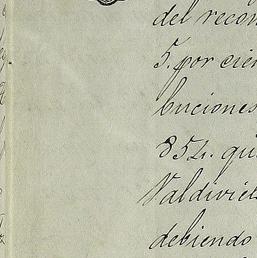 del recon
5. por cien
buciones
854. qu
Valdivies
debiendo